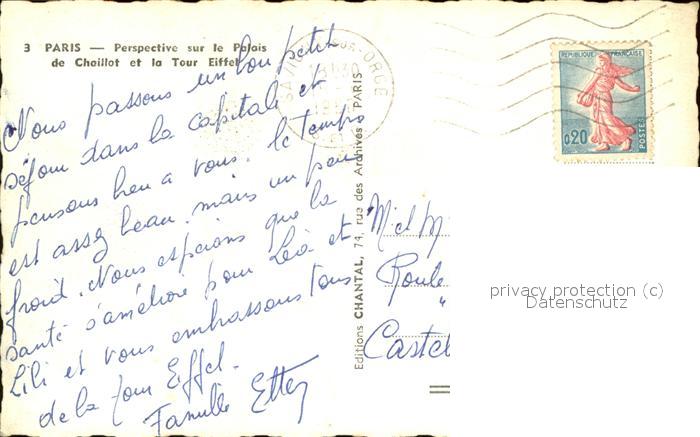 3 PARIS — Perspective sur le Palais
de Chaillot et la Tour Eiffel
Nous passons un bon petit
séjour dans la capitale et
pensons bien a vous. le temps
est assez beau. mais un peu
froid. Nous espérons que la
santé s'améliore pour Léa et
Lili et vous embrassons tous
de la Tour Eiffel.
Famille
Editions CHANTAL, 74, rue des Archives PARIS
ORGE
REPUBLIQUE FRANÇAISE
0,20
POSTES
Route
"
Castel
privacy protection (c)
Datenschutz